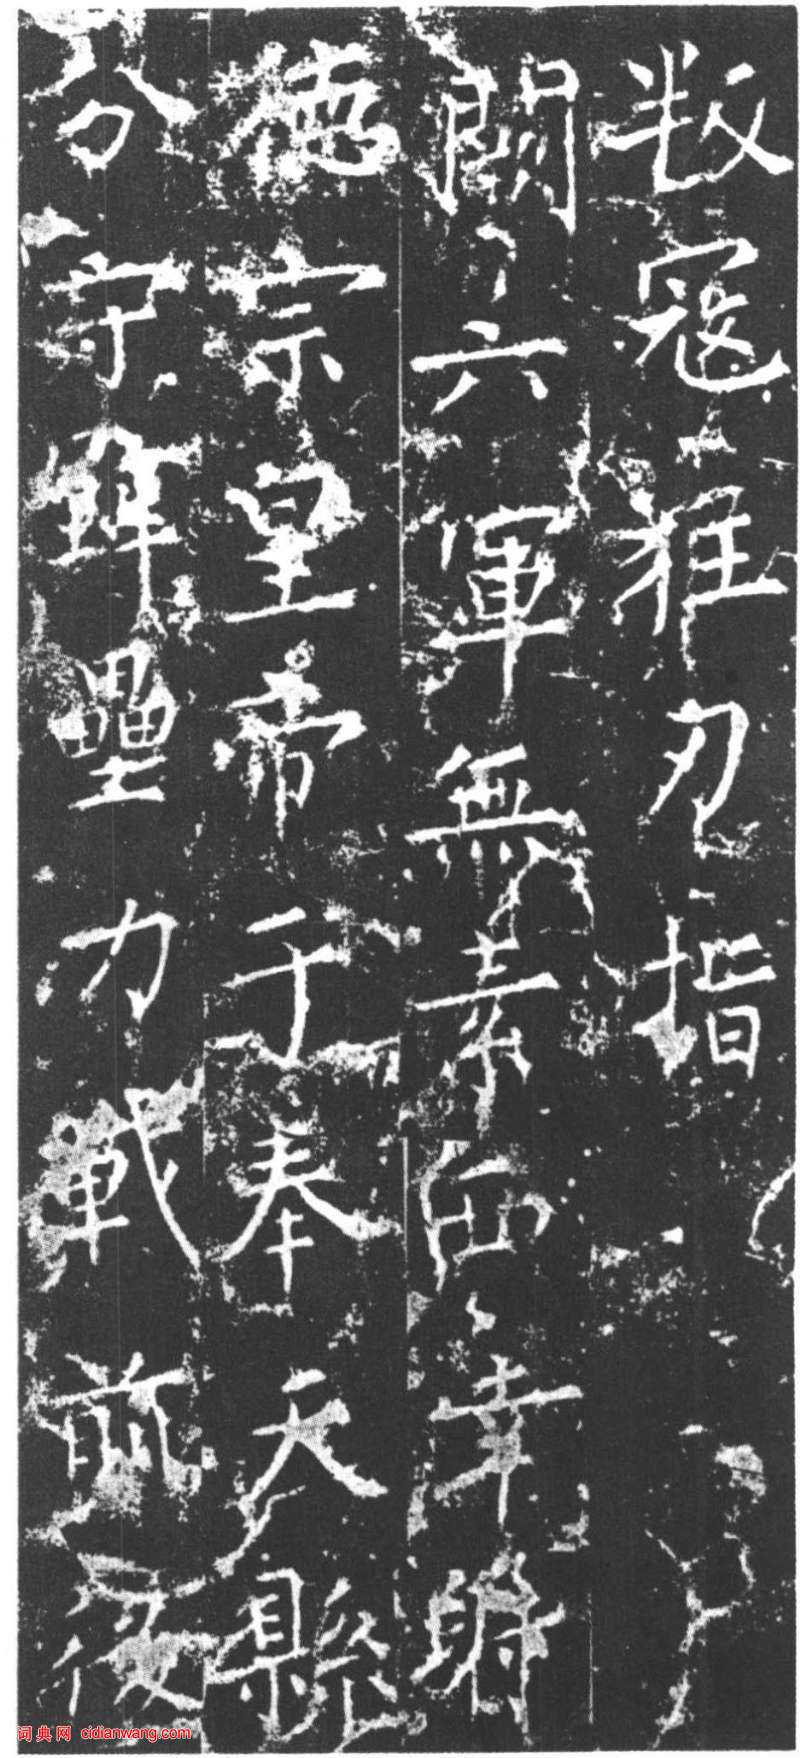 叛寇推刃指
闕六軍無素西幸
德宗皇帝于奉天縣
分守壘力戰前後
词典网 cidianwang.com